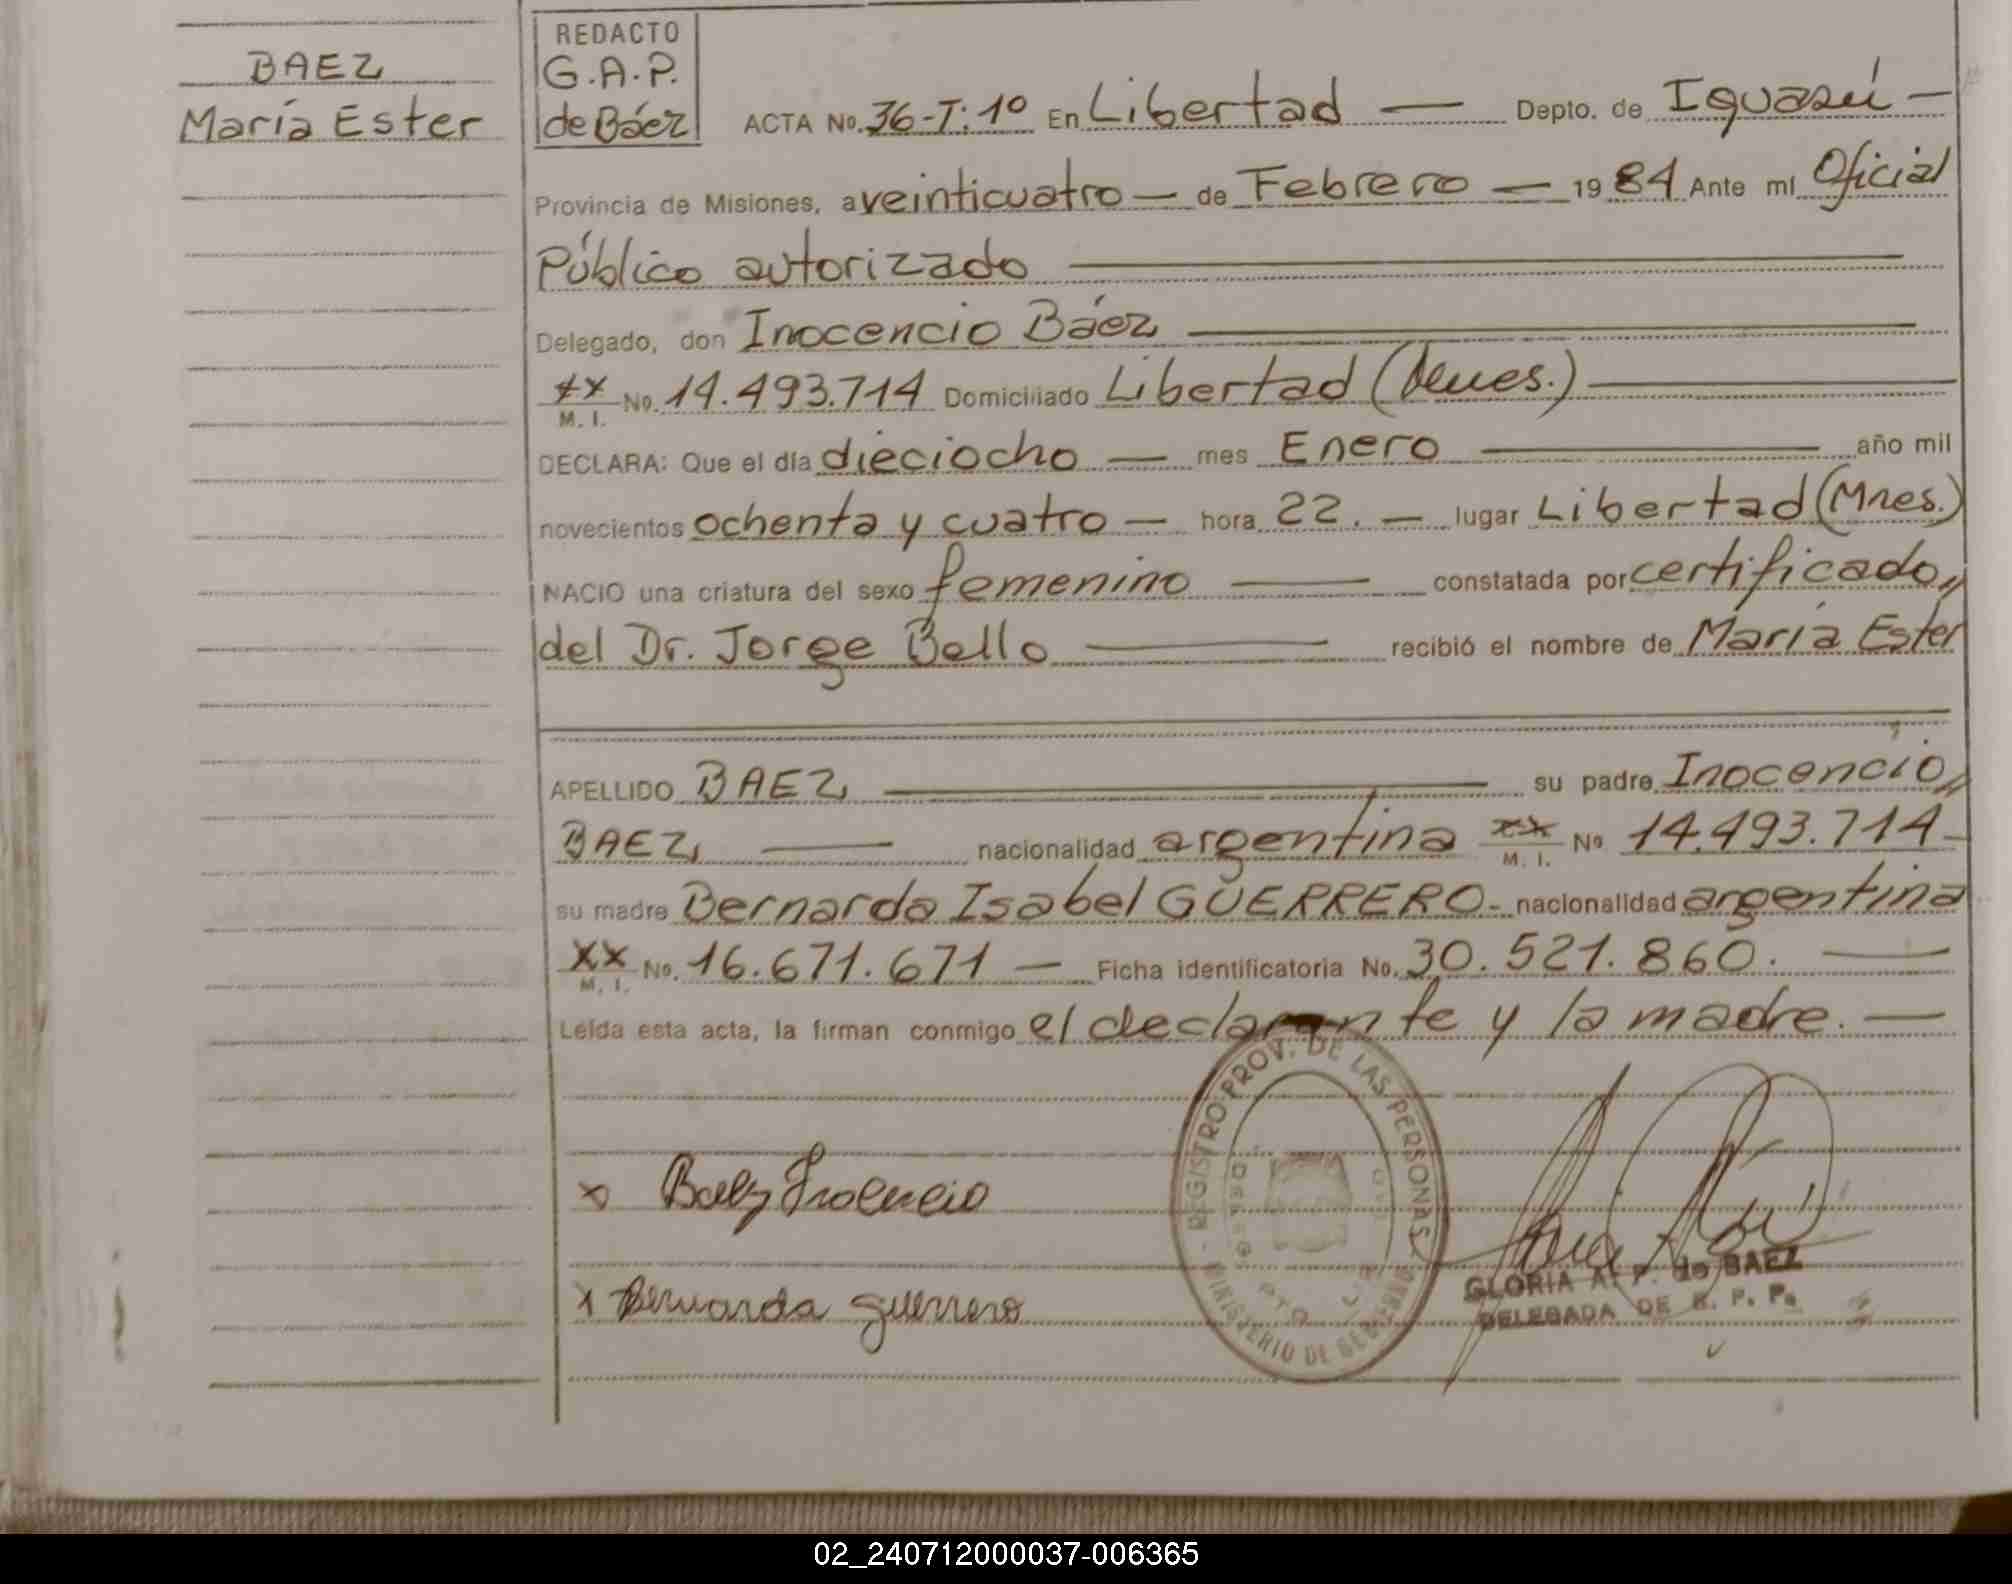 BAEZ
María Ester
REDACTO
G.A.P.
de Báez
ACTA No. 36-T:1º En Libertad — Depto. de Iguazú —
Provincia de Misiones, a veinticuatro — de Febrero — 1984 Ante mi Oficial
Público autorizado
Delegado, don Inocencio Báez
xx No. 14.493.714 Domiciliado Libertad (Mnes.)
M. I.
DECLARA: Que el día dieciocho — mes Enero — año mil
novecientos ochenta y cuatro — hora 22. — lugar Libertad (Mnes.)
NACIO una criatura del sexo femenino — constatada por certificado,,
del Dr. Jorge Bello — recibió el nombre de María Ester
APELLIDO BAEZ — su padre Inocencio,,
BAEZ — nacionalidad argentina xx No 14.493.714 —
M. I.
su madre Bernarda Isabel GUERRERO - nacionalidad argentina
xx No. 16.671.671 — Ficha identificatoria No. 30.521.860. —
M. I.
Leída esta acta, la firman conmigo el declarante y la madre. —
REGISTRO PROV. DE LAS PERSONAS
MINISTERIO DE GOBIERNO
x Baez Inocencio
x Bernarda guerrero
GLORIA A. P. de BAEZ
DELEGADA DE R. P. P.
02_240712000037-006365